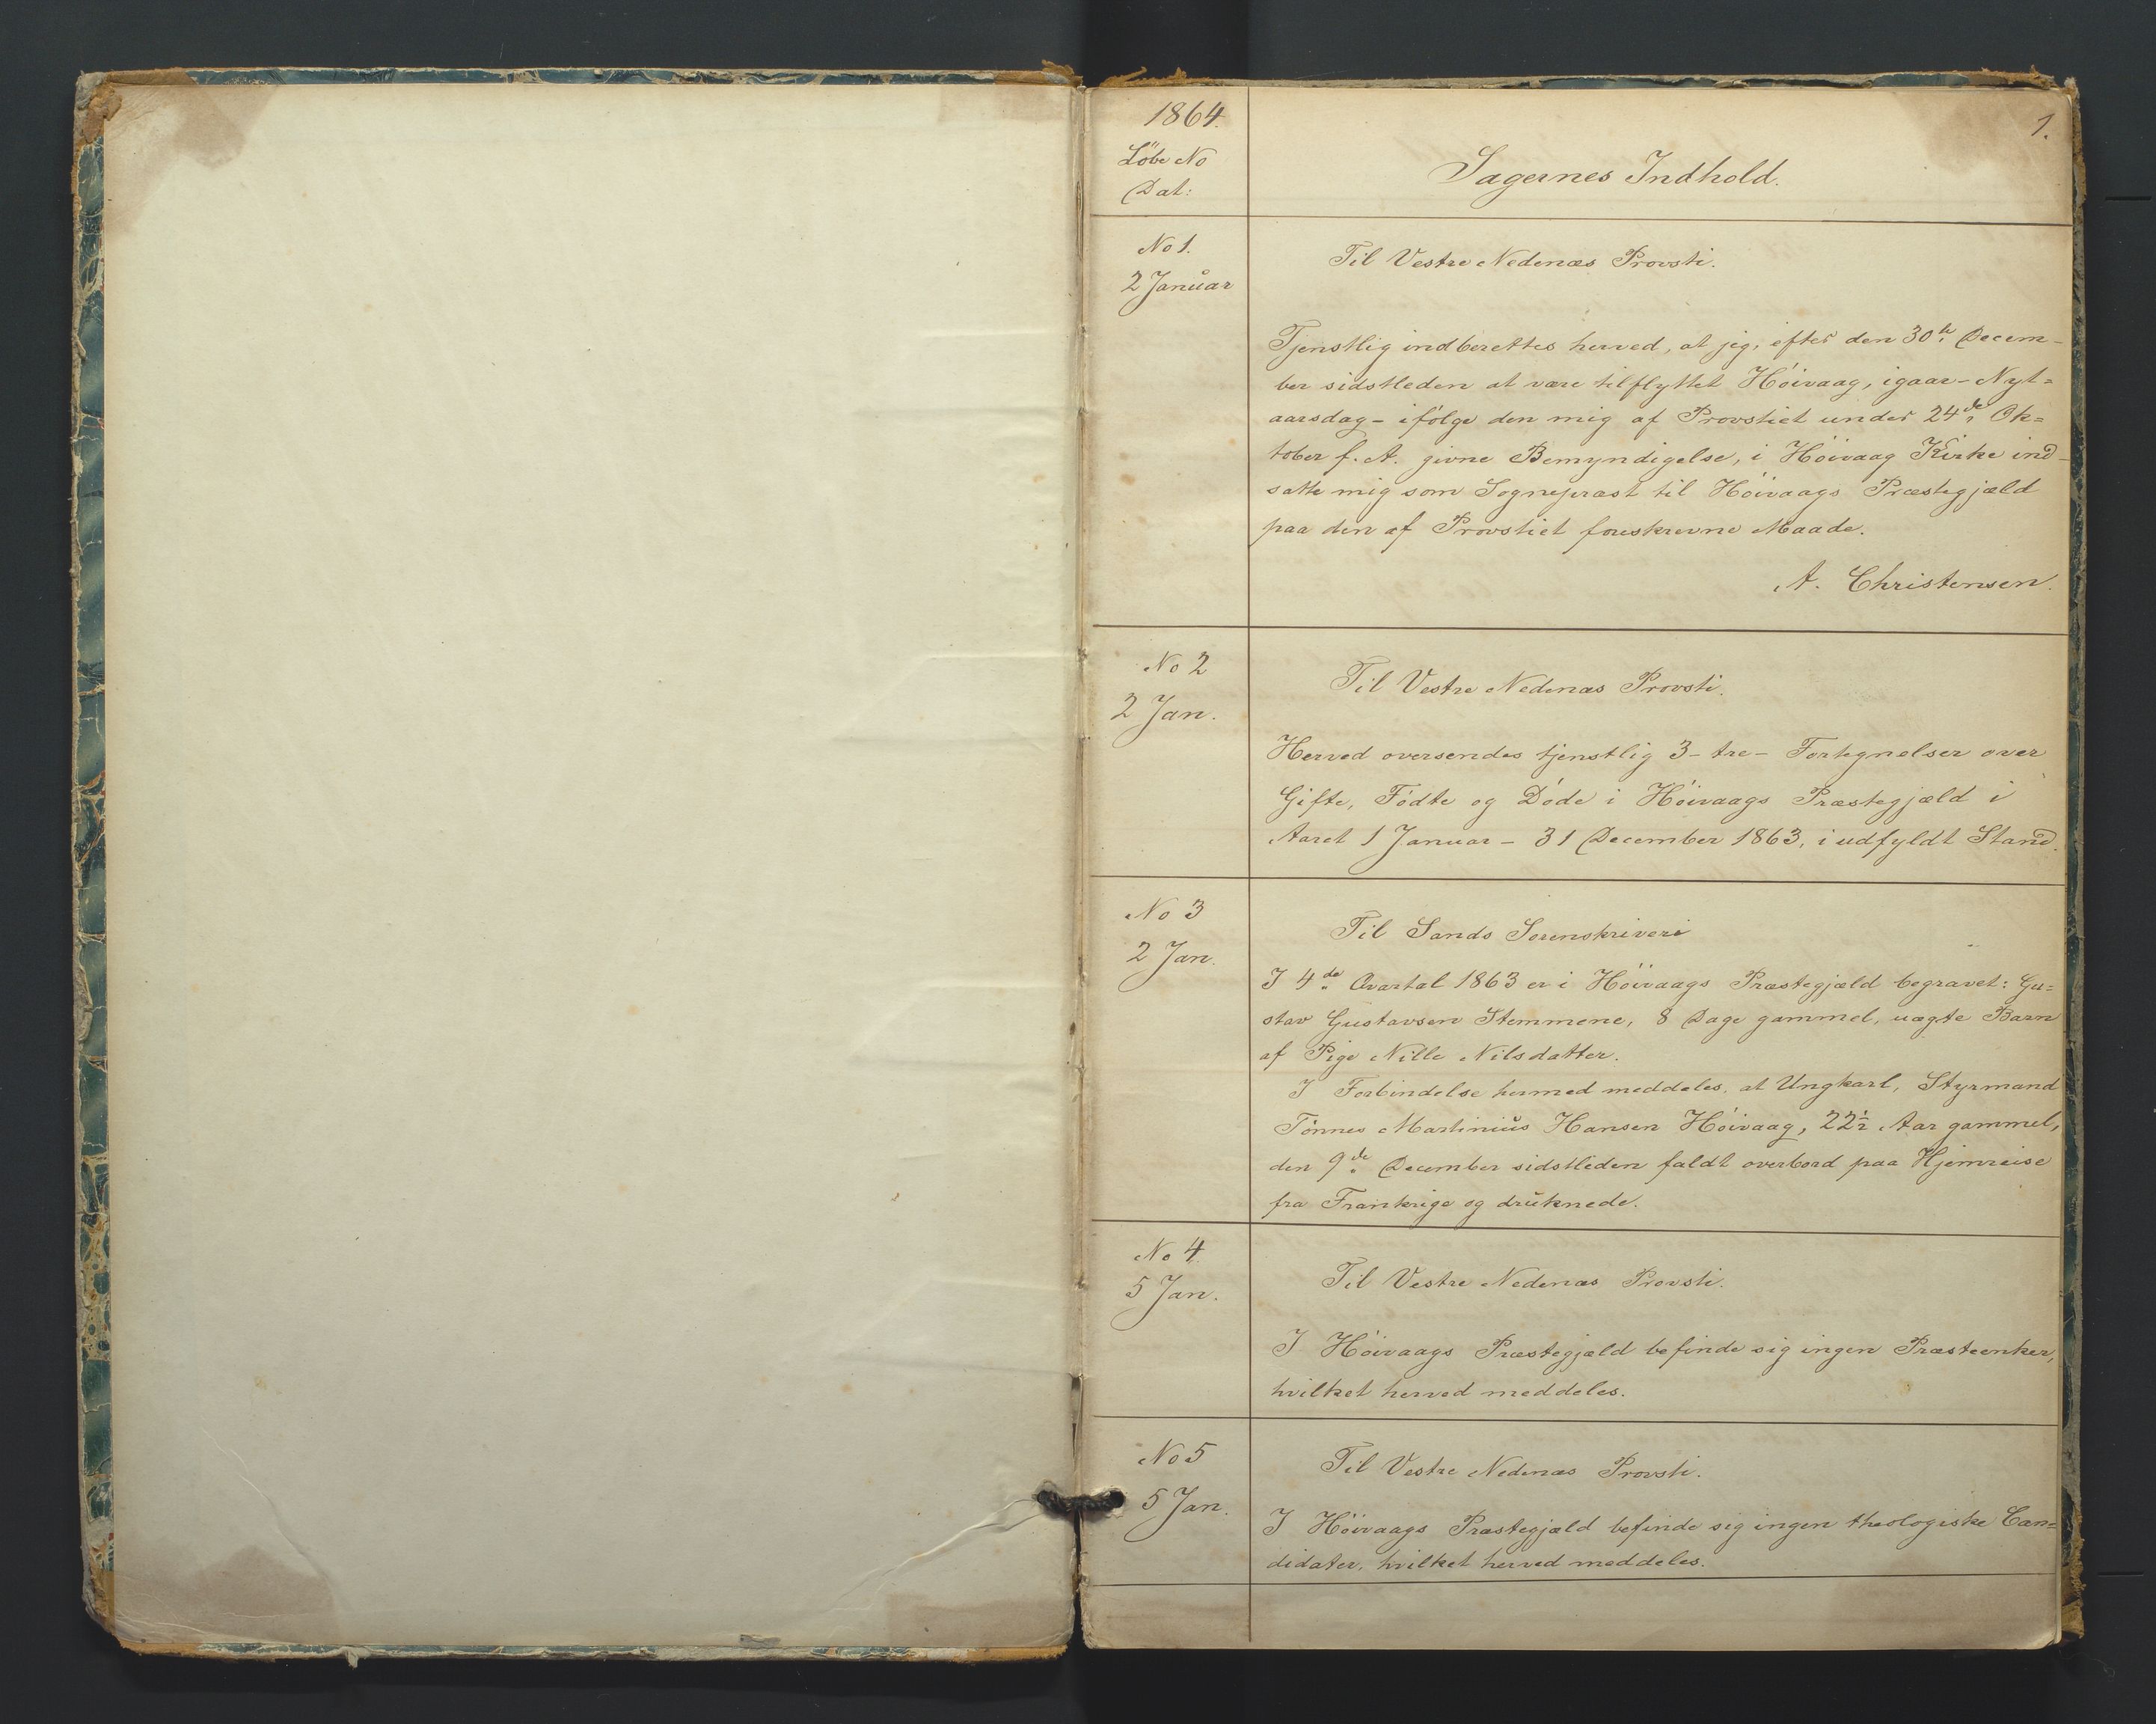 1864.
1.
Löbe No
Dat:
Sagernes Indhold.
No 1.
2 Januar
Til Vestre Nedenæs Provsti.
Tjenstlig indberettes herved, at jeg, efter den 30te Decem-
ber sidstleden at være tilflyttet Höivaag, igaar - Nyt=
aarsdag - ifölge den mig af Provstiet under 24de Ok=
tober f. A. givne Bemyndigelse, i Höivaag Kirke ind-
satte mig som Sognepræst til Höivaags Præstegjæld
paa den af Provstiet foreskrevne Maade.
A. Christensen.
No 2
2 Jan.
Til Vestre Nedenæs Provsti.
Herved oversendes tjenstlig 3 - tre - Fortegnelser over
Gifte, Födte og Döde i Höivaags Præstegjæld i
Aaret 1 Januar - 31 December 1863, i udfyldt Stand.
No 3
2 Jan.
Til Sands Sorenskriveri
I 4de Qvartal 1863 er i Höivaags Præstegjæld begravet: Gu=
stav Gustavsen Stemmene, 8 Dage gammel, uægte Barn
af Pige Nille Nilsdatter.
I Forbindelse hermed meddeles, at Ungkarl, Styrmand
Tönnes Martinius Hansen Höivaag, 22½ Aar gammel,
den 9de December sidstleden faldt overbord paa Hjemreise
fra Frankrige og druknede.
No 4.
5 Jan.
Til Vestre Nedenæs Provsti.
I Höivaags Præstegjæld befinde sig ingen Præsteenker,
hvilket herved meddeles.
No 5
5 Jan.
Til Vestre Nedenæs Provsti.
I Höivaags Præstegjæld befinde sig ingen theologiske Can=
didater, hvilket herved meddeles.